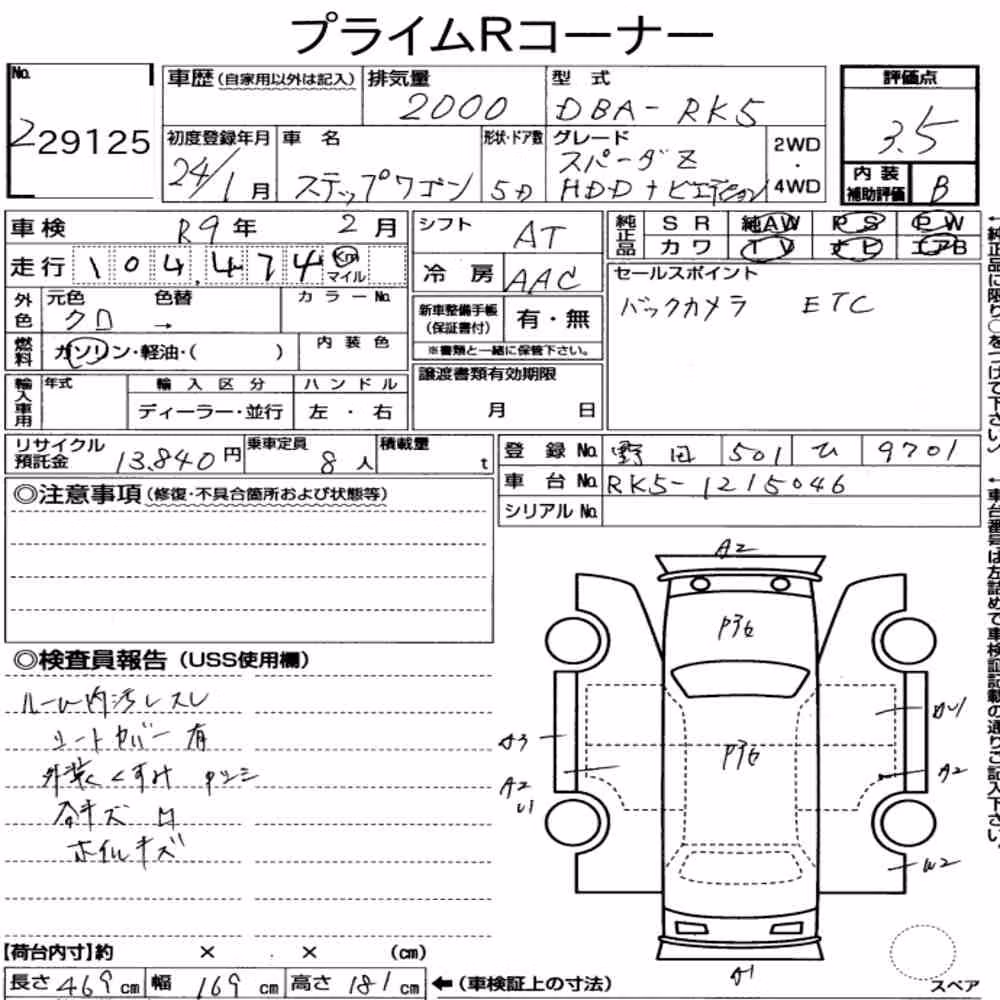 プライムRコーナー
No.
229125
車歴(自家用以外は記入)
排気量
2000
型式
DBA-RK5
評価点
3.5
初度登録年月
24/1月
車名
ステップワゴン
形状・ドア数
5D
グレード
スパーダZ
HDDナビエディション
2WD
・
4WD
内装
補助評価
B
車検
R9年 2月
シフト
AT
純正品
SR 純AW PS PW
カワ TV ナビ エアB
走行
104,474
Km
マイル
冷房
AAC
セールスポイント
バックカメラ ETC
外色
元色
クロ
色替
→
カラーNo.
新車整備手帳
(保証書付)
有・無
※書類と一緒に保管下さい。
燃料
ガソリン・軽油・( )
内装色
輸入車用
年式
輸入区分
ディーラー・並行
ハンドル
左・右
譲渡書類有効期限
月 日
リサイクル
預託金
13,840円
乗車定員
8人
積載量
t
登録No.
野田 501 ひ 9701
車台No.
RK5-1215046
シリアルNo.
◎注意事項(修復・不具合箇所および状態等)
◎検査員報告(USS使用欄)
ルーム内汚レスレ
シートカバー有
外装くすみ
ホイルキズ
A2
A3
A2
U1
A2
W2
A1
【荷台内寸】約 × . × (cm)
長さ469cm 幅169cm 高さ181cm
←(車検証上の寸法)
スペア
←純正品に限り○をつけて下さい
←車台番号は左詰めで車検証記載の通りご記入下さい。